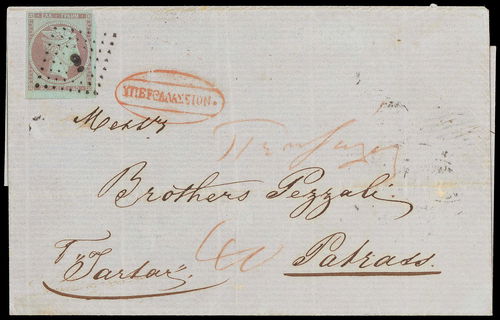 ΥΠΕΡΘΑΛΑΣΣΙΟΝ.
Messrs
Brothers Pezzali.
"Tartar"
40
Patrass.